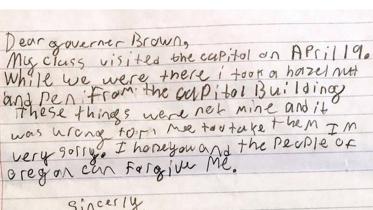 Dear governer Brown,
My class visited the capitol on April 19.
While we were there i took a hazelnut
and pen from the capitol Building
these things were not mine and it
was wrong form me too take them Im
very sorry. I hope you and the people of
oregon can forgive me.
Sincerly